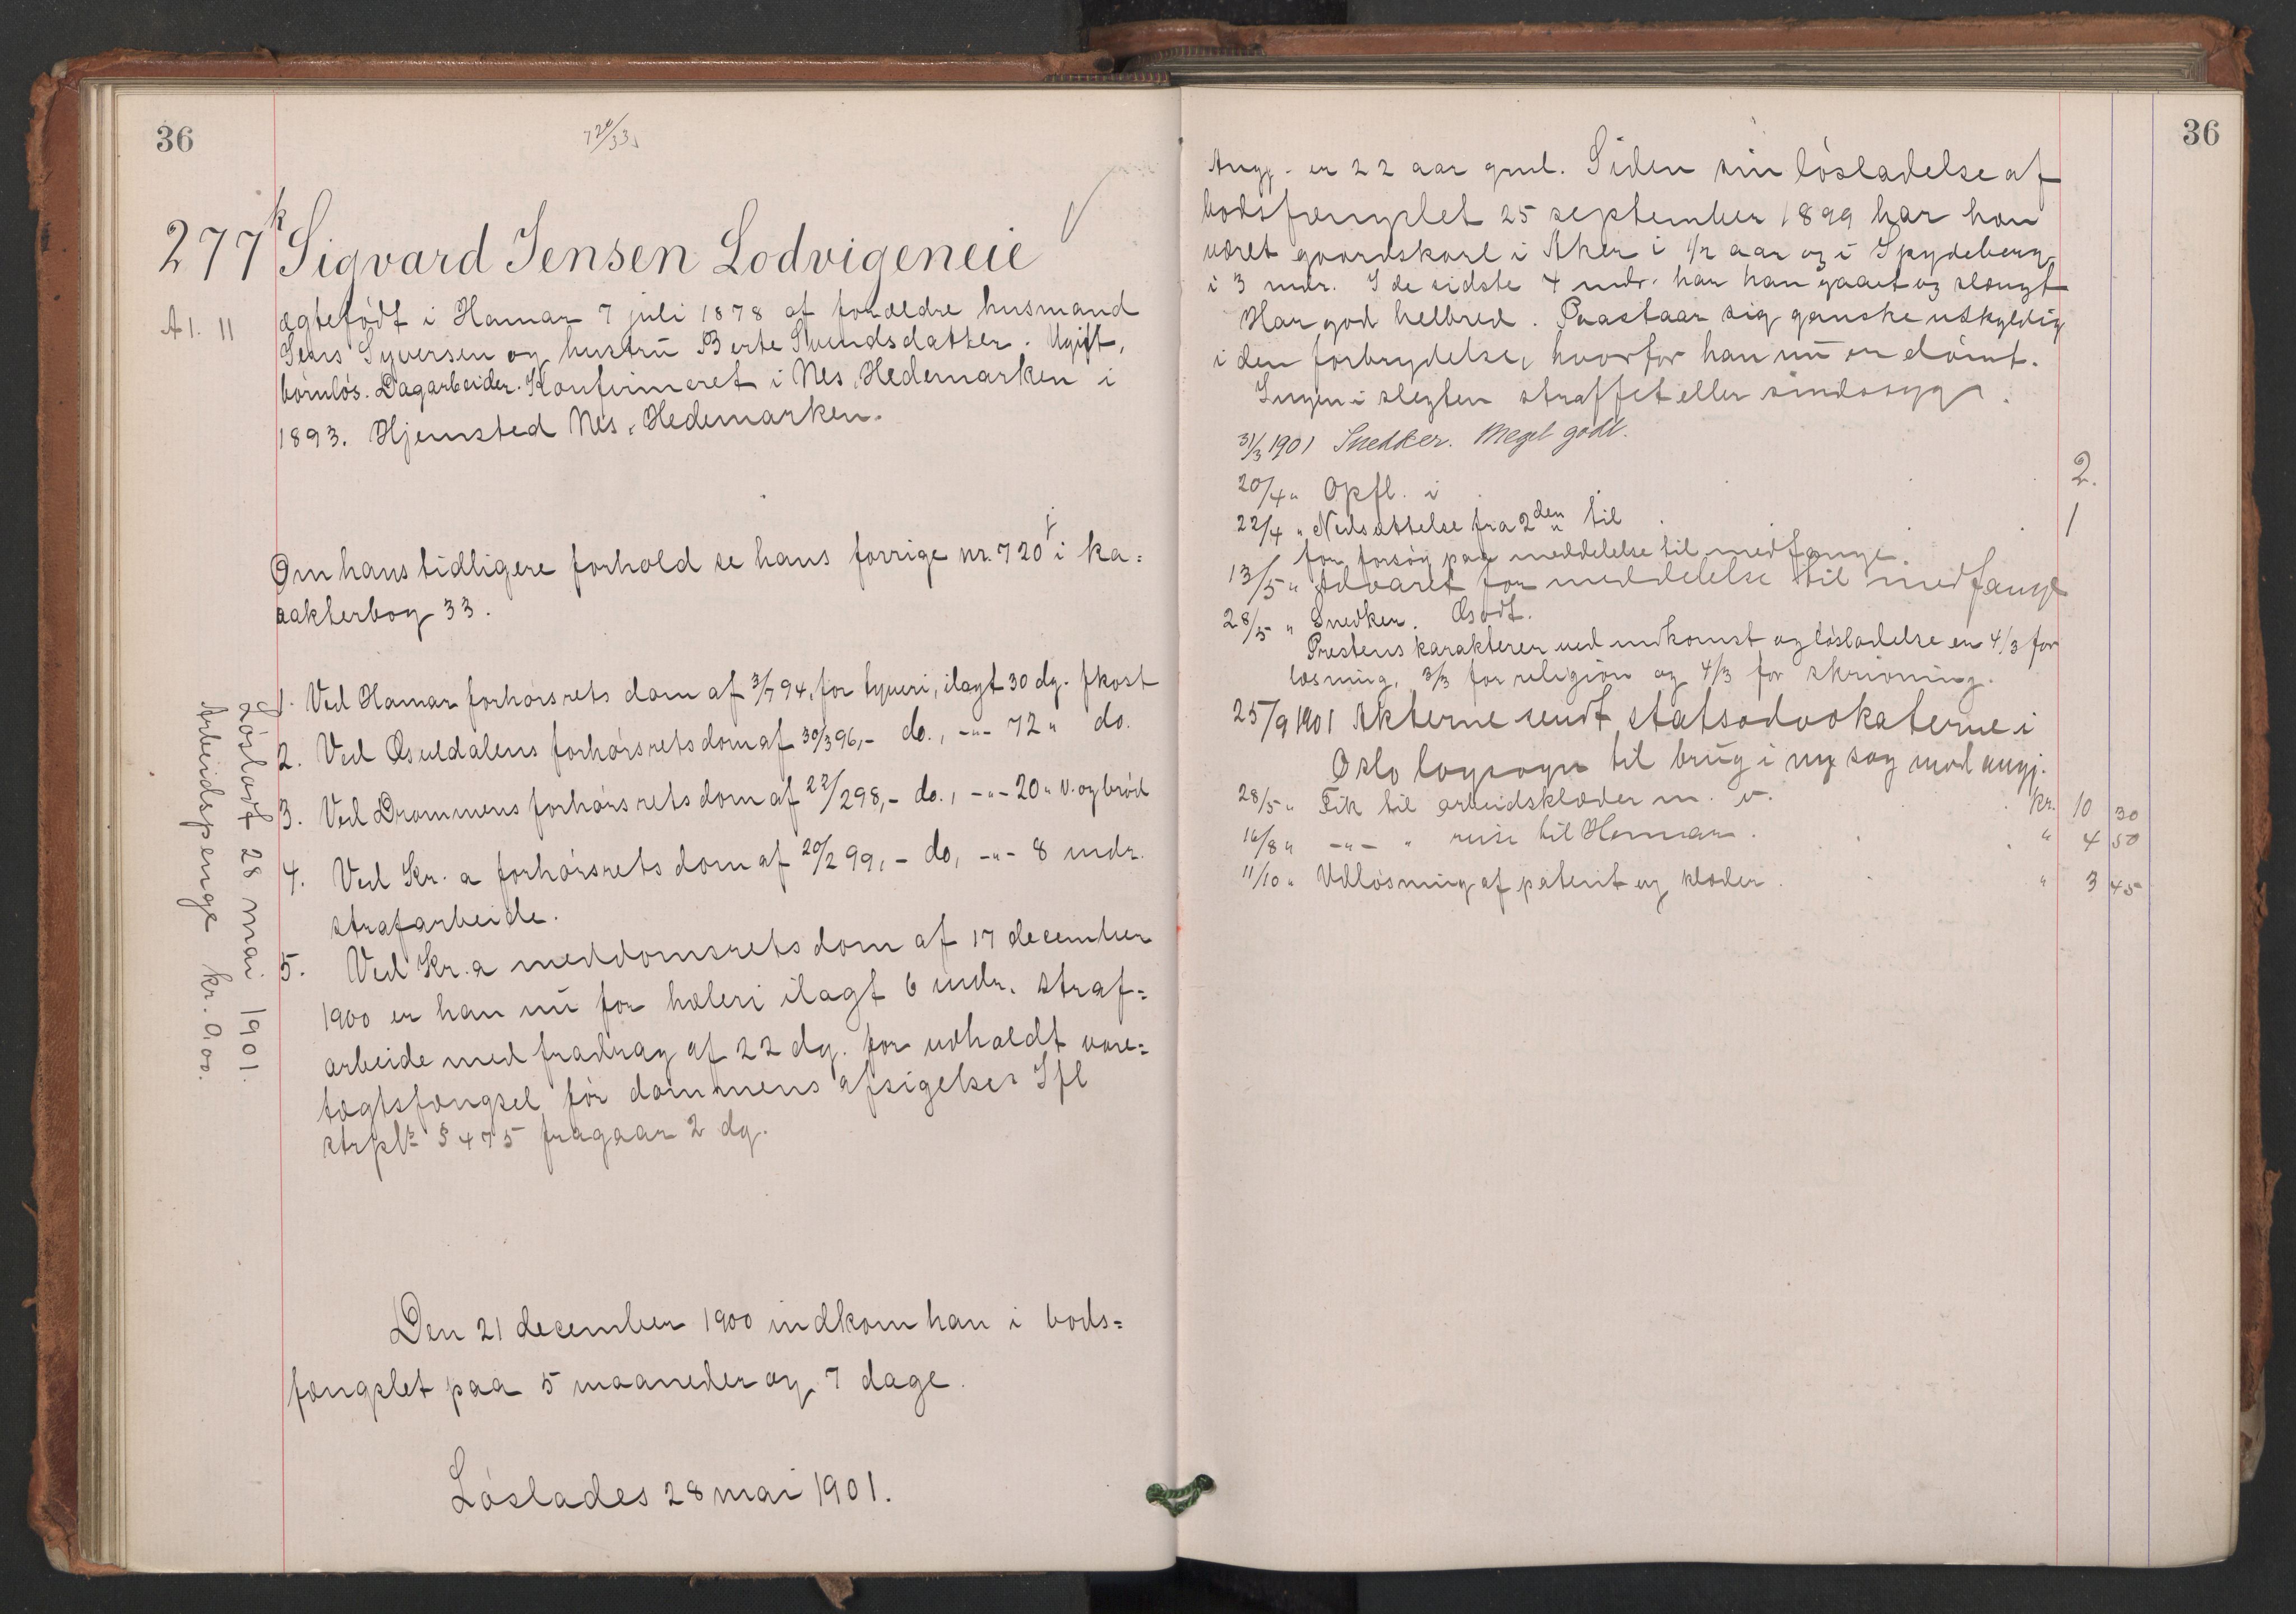 36
720/33
277k Sigvard Jensen Lodvigeneie
A 1. 11
ægtefødt i Hamar 7 juli 1878 af forældre husmand
Jens Syversen og hustru Berte Svendsdatter. Ugift,
børnløs. Dagarbeider. Konfirmeret i Nes, Hedemarken i
1893. Hjemsted Nes, Hedemarken.
Om hans tidligere forhold se hans forrige nr. 720 i i ka=
rakterbog 33.
1. Ved Hamar forhørsrets dom af 3/7 94, for tyveri, ilagt 30 dg. fkost
2. Ved Øs uldalens forhørsrets dom af 30/3 96, - do., -"- 72 " do.
3. Ved Drammens forhørsrets dom af 22/2 98, - do., -"- 20 " v. og brød
4. Ved Kr. a forhørsrets dom af 20/2 99, - do, -"- 8 mdr.
strafarbeide.
5. Ved Kr. a meddomsrets dom af 17 december
1900 er han nu for hæleri ilagt 6 mdr. straf=
arbeide med fradrag af 22 dg. for udholdt vare=
tægtsfængsel før dommens afsigelse. Ifl
strpl § 475 fragaar 2 dg.
Den 21 december 1900 indkom han i bods=
fængslet paa 5 maaneder og 7 dage.
Løslades 28 mai 1901.
Løsladt 28 mai 1901.
Arbeidspenge kr. 9.00.
36
Angj. er 22 aar gml. Siden sin løsladelse af
bodsfængslet 25 september 1899 har han
været gaardskarl i Aker i 1/2 aar og i Spydeberg
i 3 mdr. I de sidste 4 mdr. har han gaaet og slængt
Har god helbred. Paastaar sig ganske uskyldig
i den forbrydelse, hvorfor han nu er dømt.
Ingen i slegten straffet eller sindssyge.
31/3 1901 Snedker. Meget godt.
20/4 " Opfl. i 2.
22/4 " Nedsættelse fra 2den til 1
for forsøg paa meddelelse til medfange.
13/5 " Advaret for meddelelse til medfange
28/5 " Snedker. Godt.
Prestens karakterer ved indkomst og løsladelse er 4/3 for
læsning, 3/3 for religion og 4/3 for skrivning.
25/9 1901 Akterne sendt statsadvokaterne i
Oslo lagsogn til brug i ny sag mod angj.
28/5 " Fik til arbeidsklæder m. v. kr. 10 30
16/8 " -"- " reise til Hamar. " 4 50
11/10 " Udløsning af patent og klæder. " 3 45